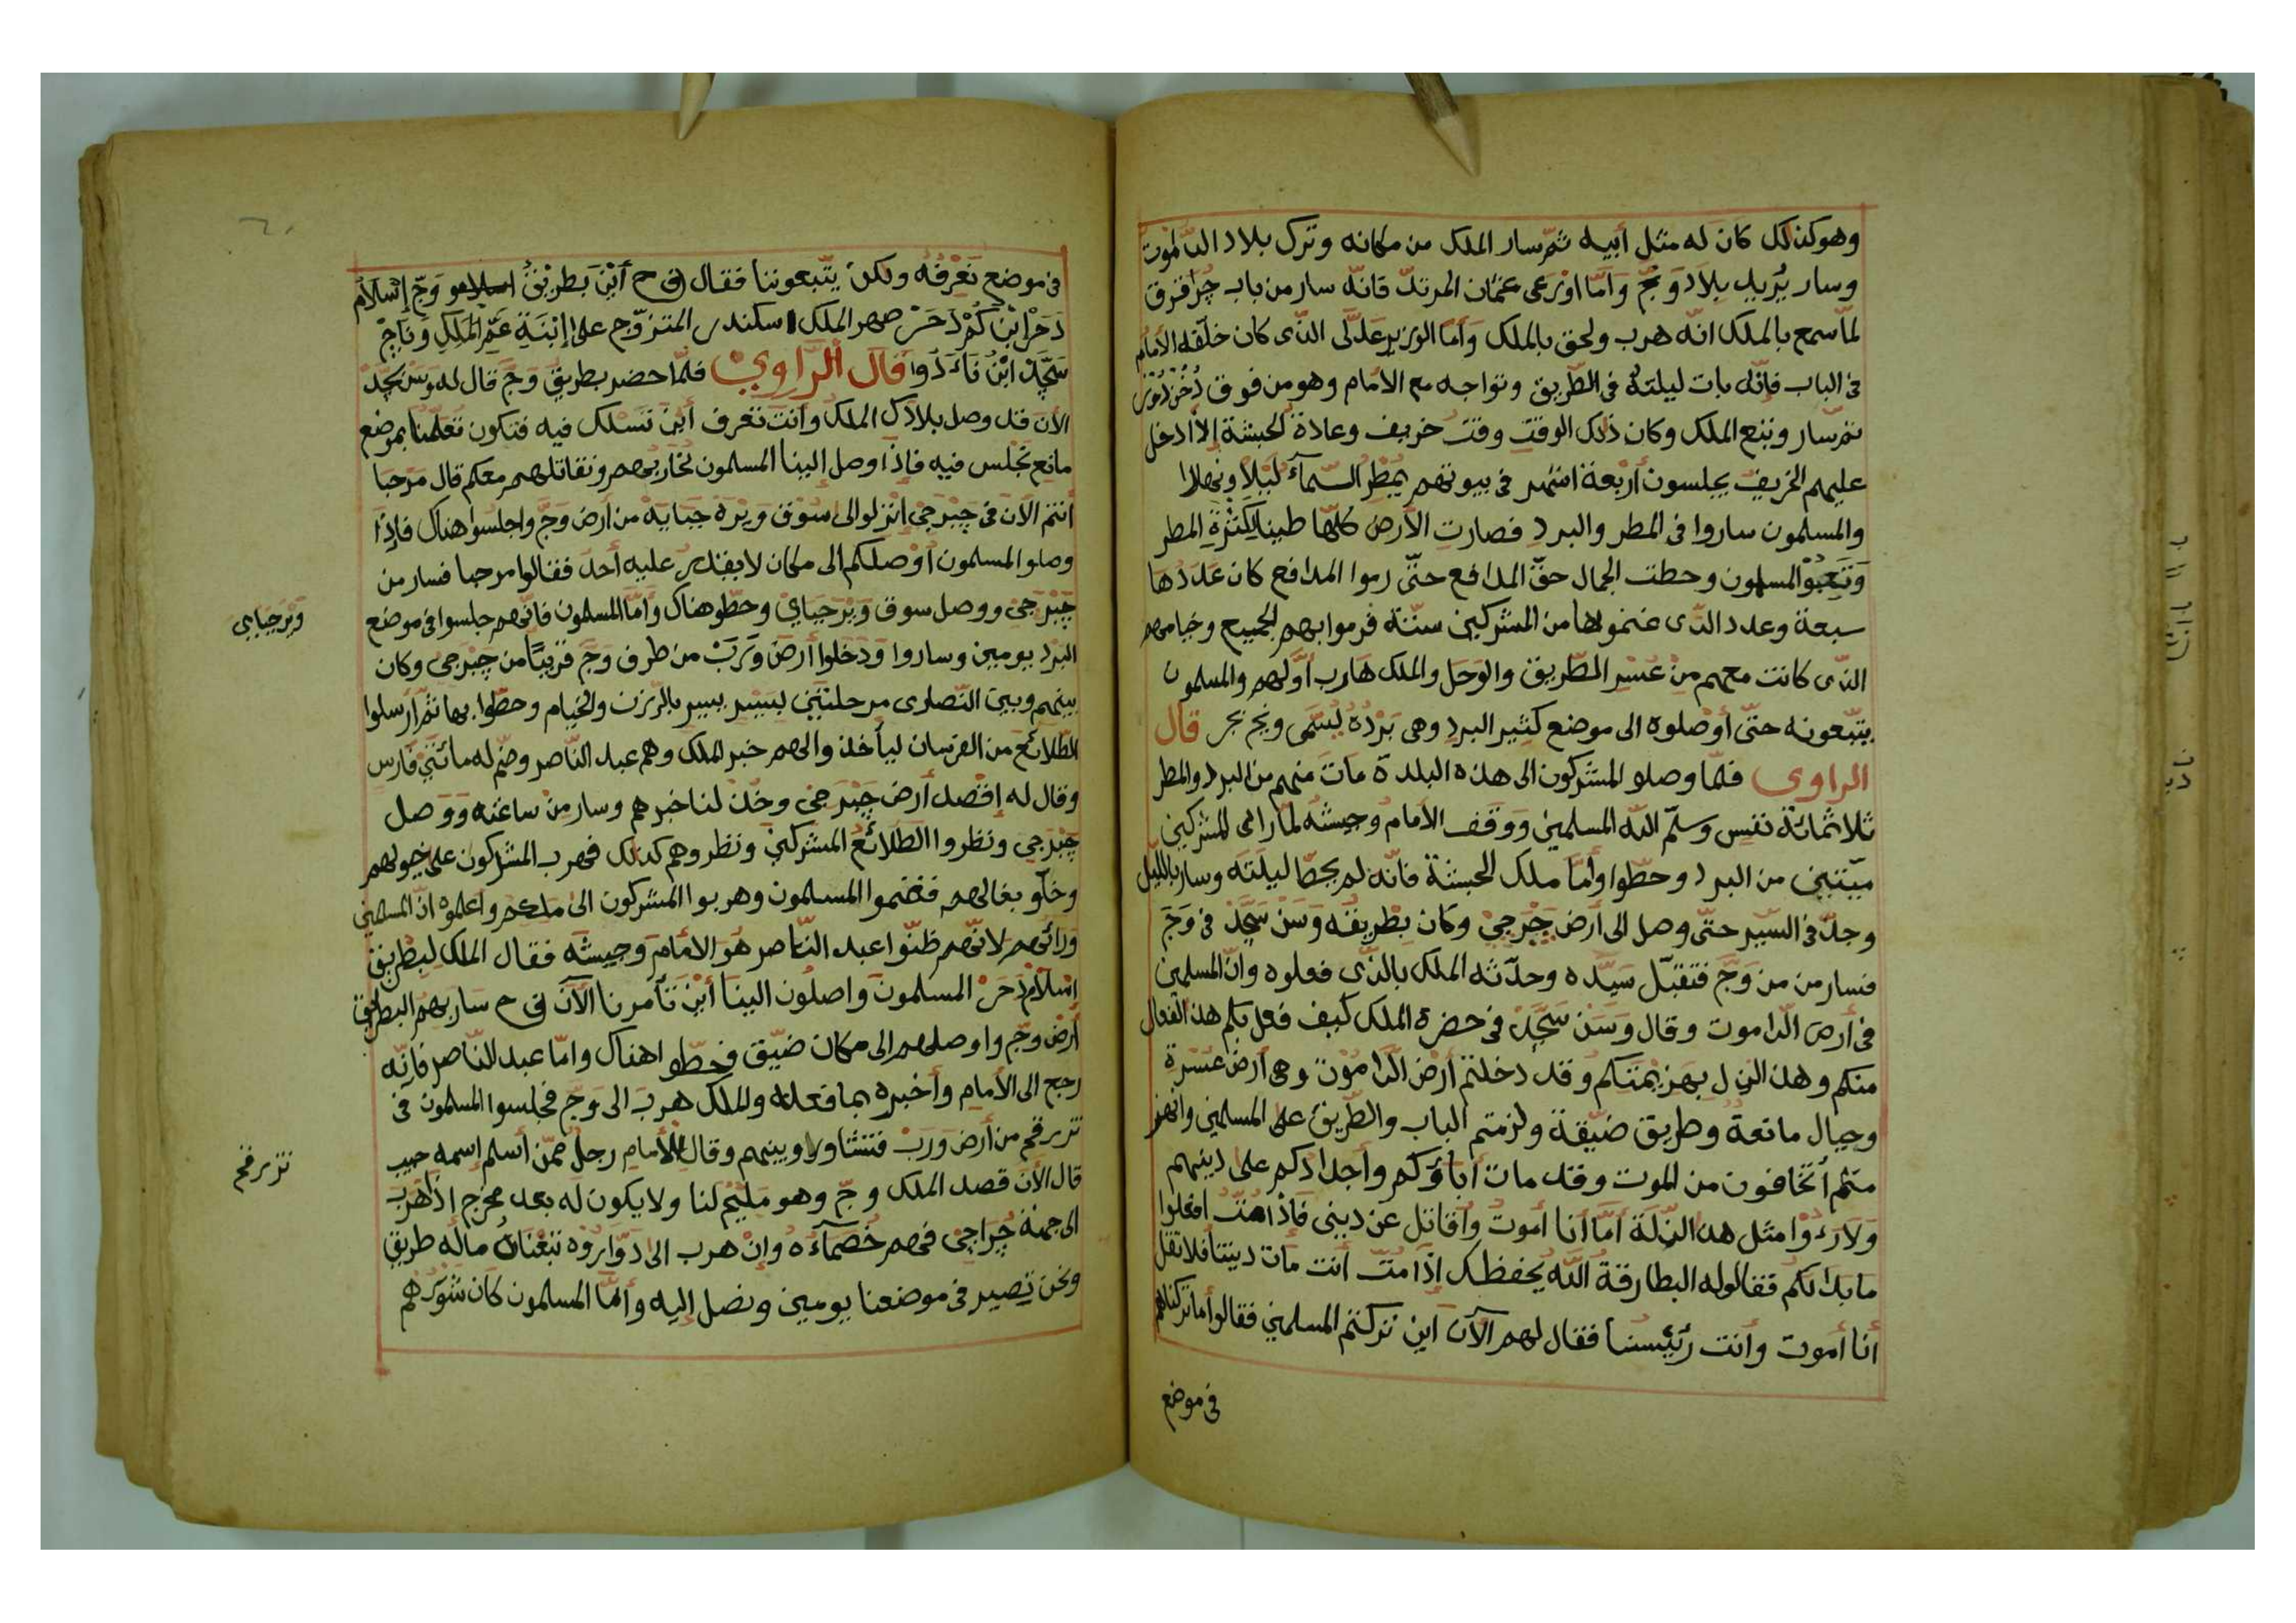 وهو كذلك كان له مثل أبيه ثمّ سار الملك من مكانه وترك بلاد الدّاموت
وسار يُريد بلاد وَجّ وَأمّا اوْرَعى عثمان المرتدّ فانّه سار من باب جُرافرق
لمّا سمع بالملك انّه هرب ولحق بالملك وَأمّا الوزير عَدلّى الذّى كان خلّفه الأمام
فى الباب فإنّه بات ليلته فى الطّريق وتواجه مع الأمام وهو من فوق دُخُن دُوْر
ثمّ سار وتبع الملك وكان ذلك الوقت وقت خريف وعادة الحبشة إلاّ ادخل
عليهم الخريف يجلسون أرْبعة اشهر فى بيوتهم يمطر السّمآء لَيْلاً ونهارا
والمسلمون ساروا فى المطر والبرد فصارت الأرض كلّها طينا لكثْرةِ المطر
وَتَعِبُوْا المسلمون وحطت الجمال حقّ المدافع حتّى رموا المدافع كان عَدَدُها
سبعة وعدد الذّى غنموها من المشركين ستّة فرموا بهم الجميع وخيامهم
الذّى كانت معهم مِنْ عُسْرِ الطّريق والوَحَل والملك هارب أوّلهم والمسلمون
يتّبعونه حتّى أوْصلوه الى موضع كثير البرد وهى بَرْدُهُ يُسَمّى ونج بجر قال
الراوى فلمّا وصلو المشركون الى هذه البلدة مَاتَ منهم من البرد والمطر
ثلاثمائة نفس وسلّم اللّه المسلمين ووقف الأمام وجيشُه لمّا راى المشركين
ميّتين من البرد وحطّوا وأمّا ملك الحبشة فانّه لم يحطّ ليلَتَه وسار باللّيل
وجدّ فى السّير حتّى وصل الى أرض جَبْرجىْ وكان بِطْريقُه وَسَنْ سَجّدْ فى وَجّ
فسار من من وَجّ فتقبّل سَيّده وحدّثه الملك بالذّى فعلوه وانّ المسلمين
فى أرض الدّاموت وقال وَسَن سَجّدْ فى حضرة الملك كيف فعل بكم هذا الفعال
منكم وهذا الذل بهَزيْمَتكم وقد دخلتم أرْض الدّامُوْت وهى أرْض عَسْرة
وجبال مانعةُ وطريق ضيّقة ولزمتم الباب والطّريق على المسلمين وانهز
متم أتخافون من الموت وقد مات أباؤكم وأجدادكم على دينهم
وَلا رَءَوْا مثل هذا الذّلة أمّا أنا أموتُ وأقاتل عن دينى فَاذا متّ افعلوا
ما بدا لكم فقالوله البطارقة اللّه يحفظك إذا متّ أنت مات ديننا فلا تقل
أنا أموت وأنت رئيسنا فقال لهم الآن اين تركتم المسلمين فقالوا أما تركناهم
فى موضع
فى موضع نَعْرفُه ولكنْ يتّبعوننا فقال فى ح أيْنَ بَطريْقُ وَجّ إسْلامُ
دَحَرْ ابْن كُمْ دَحَرْ صهر الملك اسكندر المتزوّج على إبْنَةِ عَمِّ الملكِ وَنَاجِحْ
سَجّدْ ابْنُ نَاءَدُوا قال الرّاوى فلمّا حضر بطريق وَجّ قال له وسن سجّدْ
الأن قد وصل بلادَك الملك وأنت تعرف أيْنَ نَسْلك فيه فتكون تُعَلّمنا بموضع
مانع نَجْلس فيه فاذا وصل إلينا المسلمون نحاربهم ونقاتلهم معكم قال مَرْحبا
أنتم الآن فى جِبَرْجىْ انْزلو الى سُوْق وِيْزه جَبَايه من أرض وَجّ واجلسوا هناك فإذا
وصلو المسلمون أوْصلكم الى مكان لا يقدر عليه أحد فقالوا مرحبا فسار من
جَبْرجىْ ووصل سوق وَيْز جَبَايْ وحطّو هناك وأمّا المسلمون فانّهم جلسوا فى موضع
البرد يومين وساروا وَدَخلوا أرْضَ وَرَبْ من طرف وَجّ قريبًا من جِبْرجىْ وكان
بينهم وبين النّصارى مرحلتَيْن بسَيْر بالرّزن والخيام وحطّوا بها ثمّ أرْسلوا
الطّلائع من الفرسان ليأخذ والهم خبر الملك وهم عبد النّاصر وضمّ له مائتَيْ فَارس
وقال له إقْصد أرْض جِبْرجىْ وخُذْ لنا خبرهم وسار مِنْ ساعته وَوَصل
جِبْرجىْ ونظروا الطّلائعُ المشركين ونظروهم كذلك فهرب المشركون على خيولهم
وخلّو بغالهم فغنموا المسلمون وهربوا المشركون الى ملكهم وأعلموه انّ المسلمين
ورائهم لانّهم ظنّوا عبد النّاصر هُوَ الامَامُ وجيشَه فقال الملك لبطْريق
إسْلامُ دَحَرْ المسلمونَ واصلُون الينا أيْنَ تأمرنا الآن فى ح سَار بهم البطريق
أرْض وجّ واوصلهم الى مكان ضيّق فحطّو اهناك وامّا عبد النّاصر فانّه
رجع الى الأمام وأخبره بما فعله والملك هربَ الى وَجّ فجلسوا المسلمون فى
تزبرقم من أرْض وَرَبْ فتشاورا وبينهم وقال للأمام رجلٌ ممّنْ أسلم إسمه حبيب
قال الآن قصد الملك وجّ وهو مليْحٌ لنا ولا يكون له بعد مخرج إذا هَرَبَ
الى جهة جُراجىْ فهم خُصَمآءُه وإنْ هرب الى دَوَارُوه تبعْناهُ ماله طريق
ونحن نصير فى موضعنا يومين ونصل إليه وأمّا المسلمون كان شَوْرُهم
ويز جبايى
تزبرقم